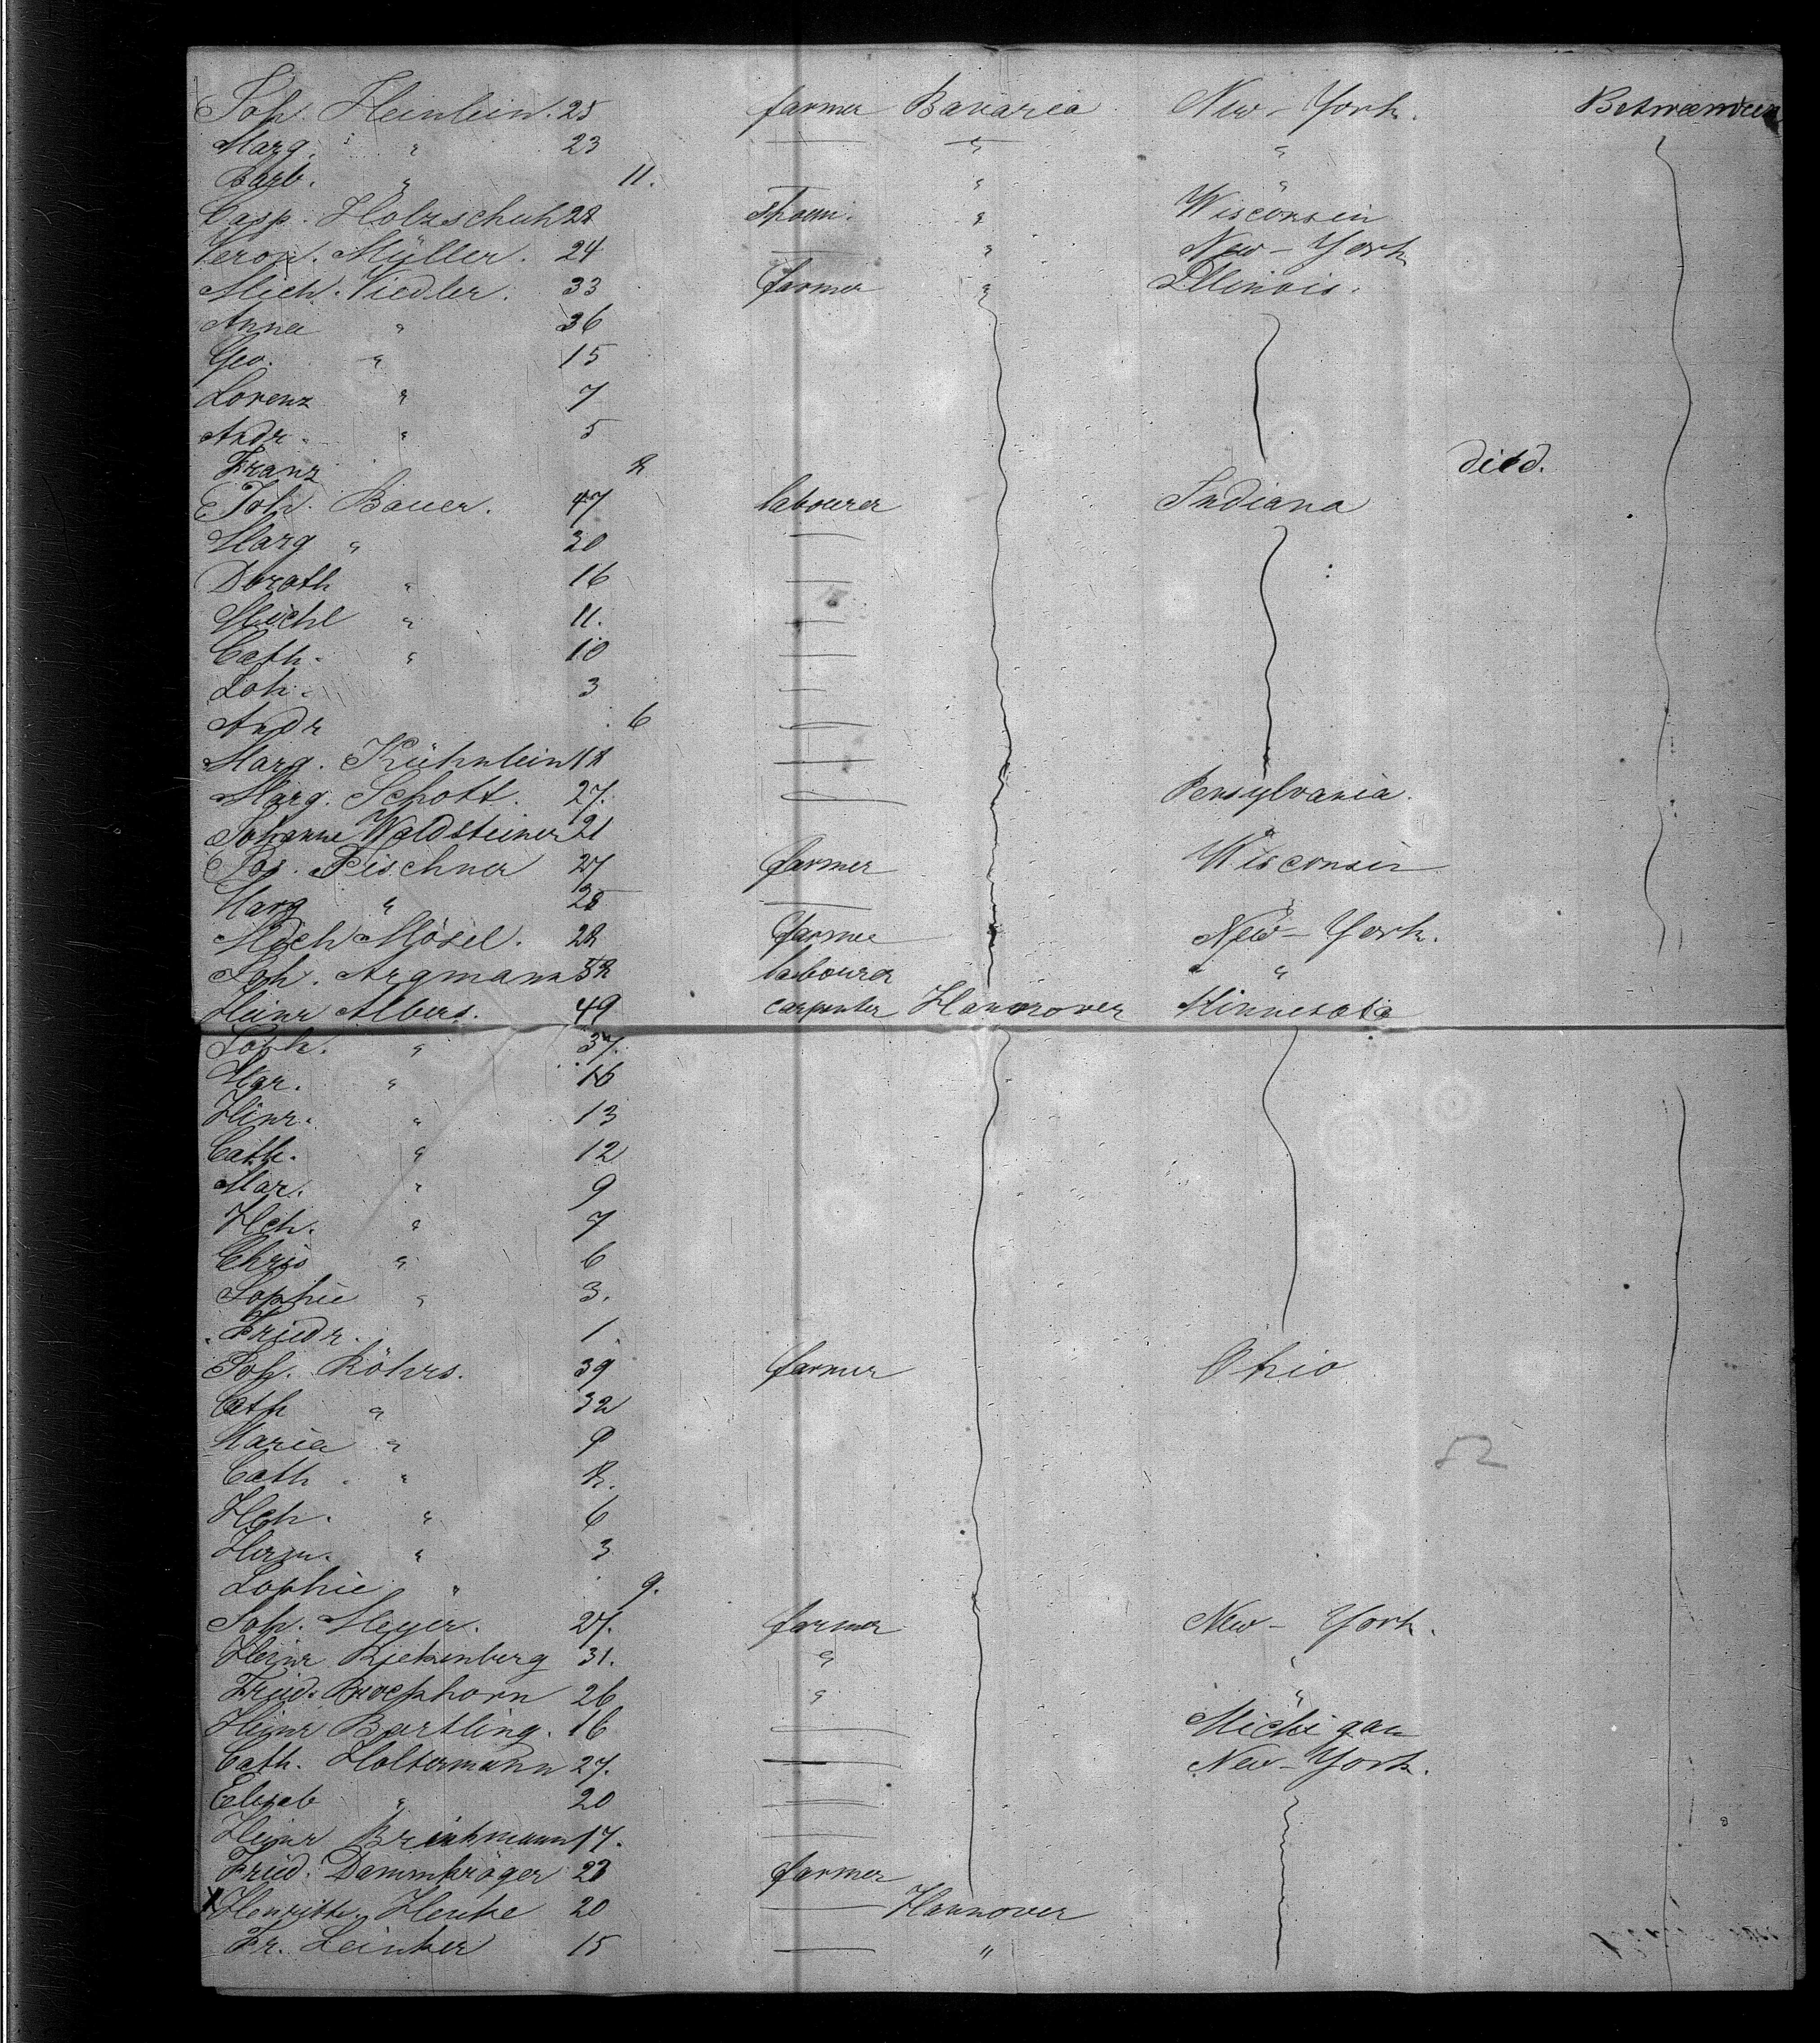 Joh. Heinlein. 25 farmer Bavaria New-York. Betweendeck
Marg. " 23 — " "
Barb. " 11. " "
Casp. Holzschuh 28 " Wisconsin
Veron. Müller. 24 — " New-York
Mich. Viedler. 33 farmer " Illinois.
Anna " 36
Geo. " 15
Lorenz " 7
Andr. " 5
Franz 8 died.
Joh. Bauer. 47 labourer Indiana
Marg " 30 —
Doroth " 16 —
Michl " 11. —
Cath. " 10 —
Joh. 3 —
Andr 6 —
Marg. Kühnlein 18 —
Marg. Schott. 27. — Pensylvania.
Johanne Waldsteiner 21 "
Jos. Pischner 27 farmer Wisconsin
Marg " 28 — "
Mich Mösel. 28 farmer New-York.
Joh. Argmann 38 labourer " "
Heinr Albers. 49 carpenter Hannover Minnesota
Soph. " 37.
Mar. " 16
Hinr. " 13
Cath. " 12
Mar. " 9
Hch. " 7
Chris " 6
Sophie " 3.
Friedr. 1
Joh. Röhrs. 39 farmer Ohio
Cath " 32
Maria " 9
Cath. " 8.
Hch. " 6
Herm. " 3
Sophie " 9.
Joh. Meyer. 27. farmer New-York.
Heinr Riekenberg 31. " "
Fried. Brockhorn 26 " "
Heinr Bartling. 16 — Michigan
Cath. Holtermann 27. — New-York.
Elisab " 20 —
Heinr Brinkmann 17. —
Fried. Dammkröger 23 farmer
X Henriette Henke 20 — Hannover
Fr. Leinker 15 — "